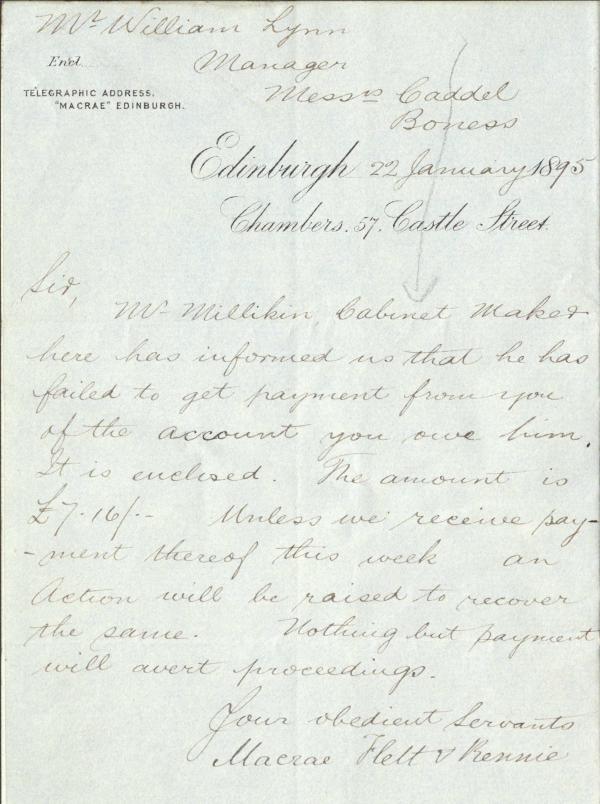 Mr William Lynn
Encl.
Manager
TELEGRAPHIC ADDRESS.
"MACRAE" EDINBURGH.
Messrs Caddel
Boness
Edinburgh 22 January 1895
Chambers. 57, Castle Street.
Sir,
Mr Millikin Cabinet Maker
here has informed us that he has
failed to get payment from you
of the account you owe him.
It is enclosed. The amount is
£7.16/.- Unless we receive pay-
-ment thereof this week an
Action will be raised to recover
the same. Nothing but payment
will avert proceedings.
Your obedient Servants
Macrae Flett & Rennie